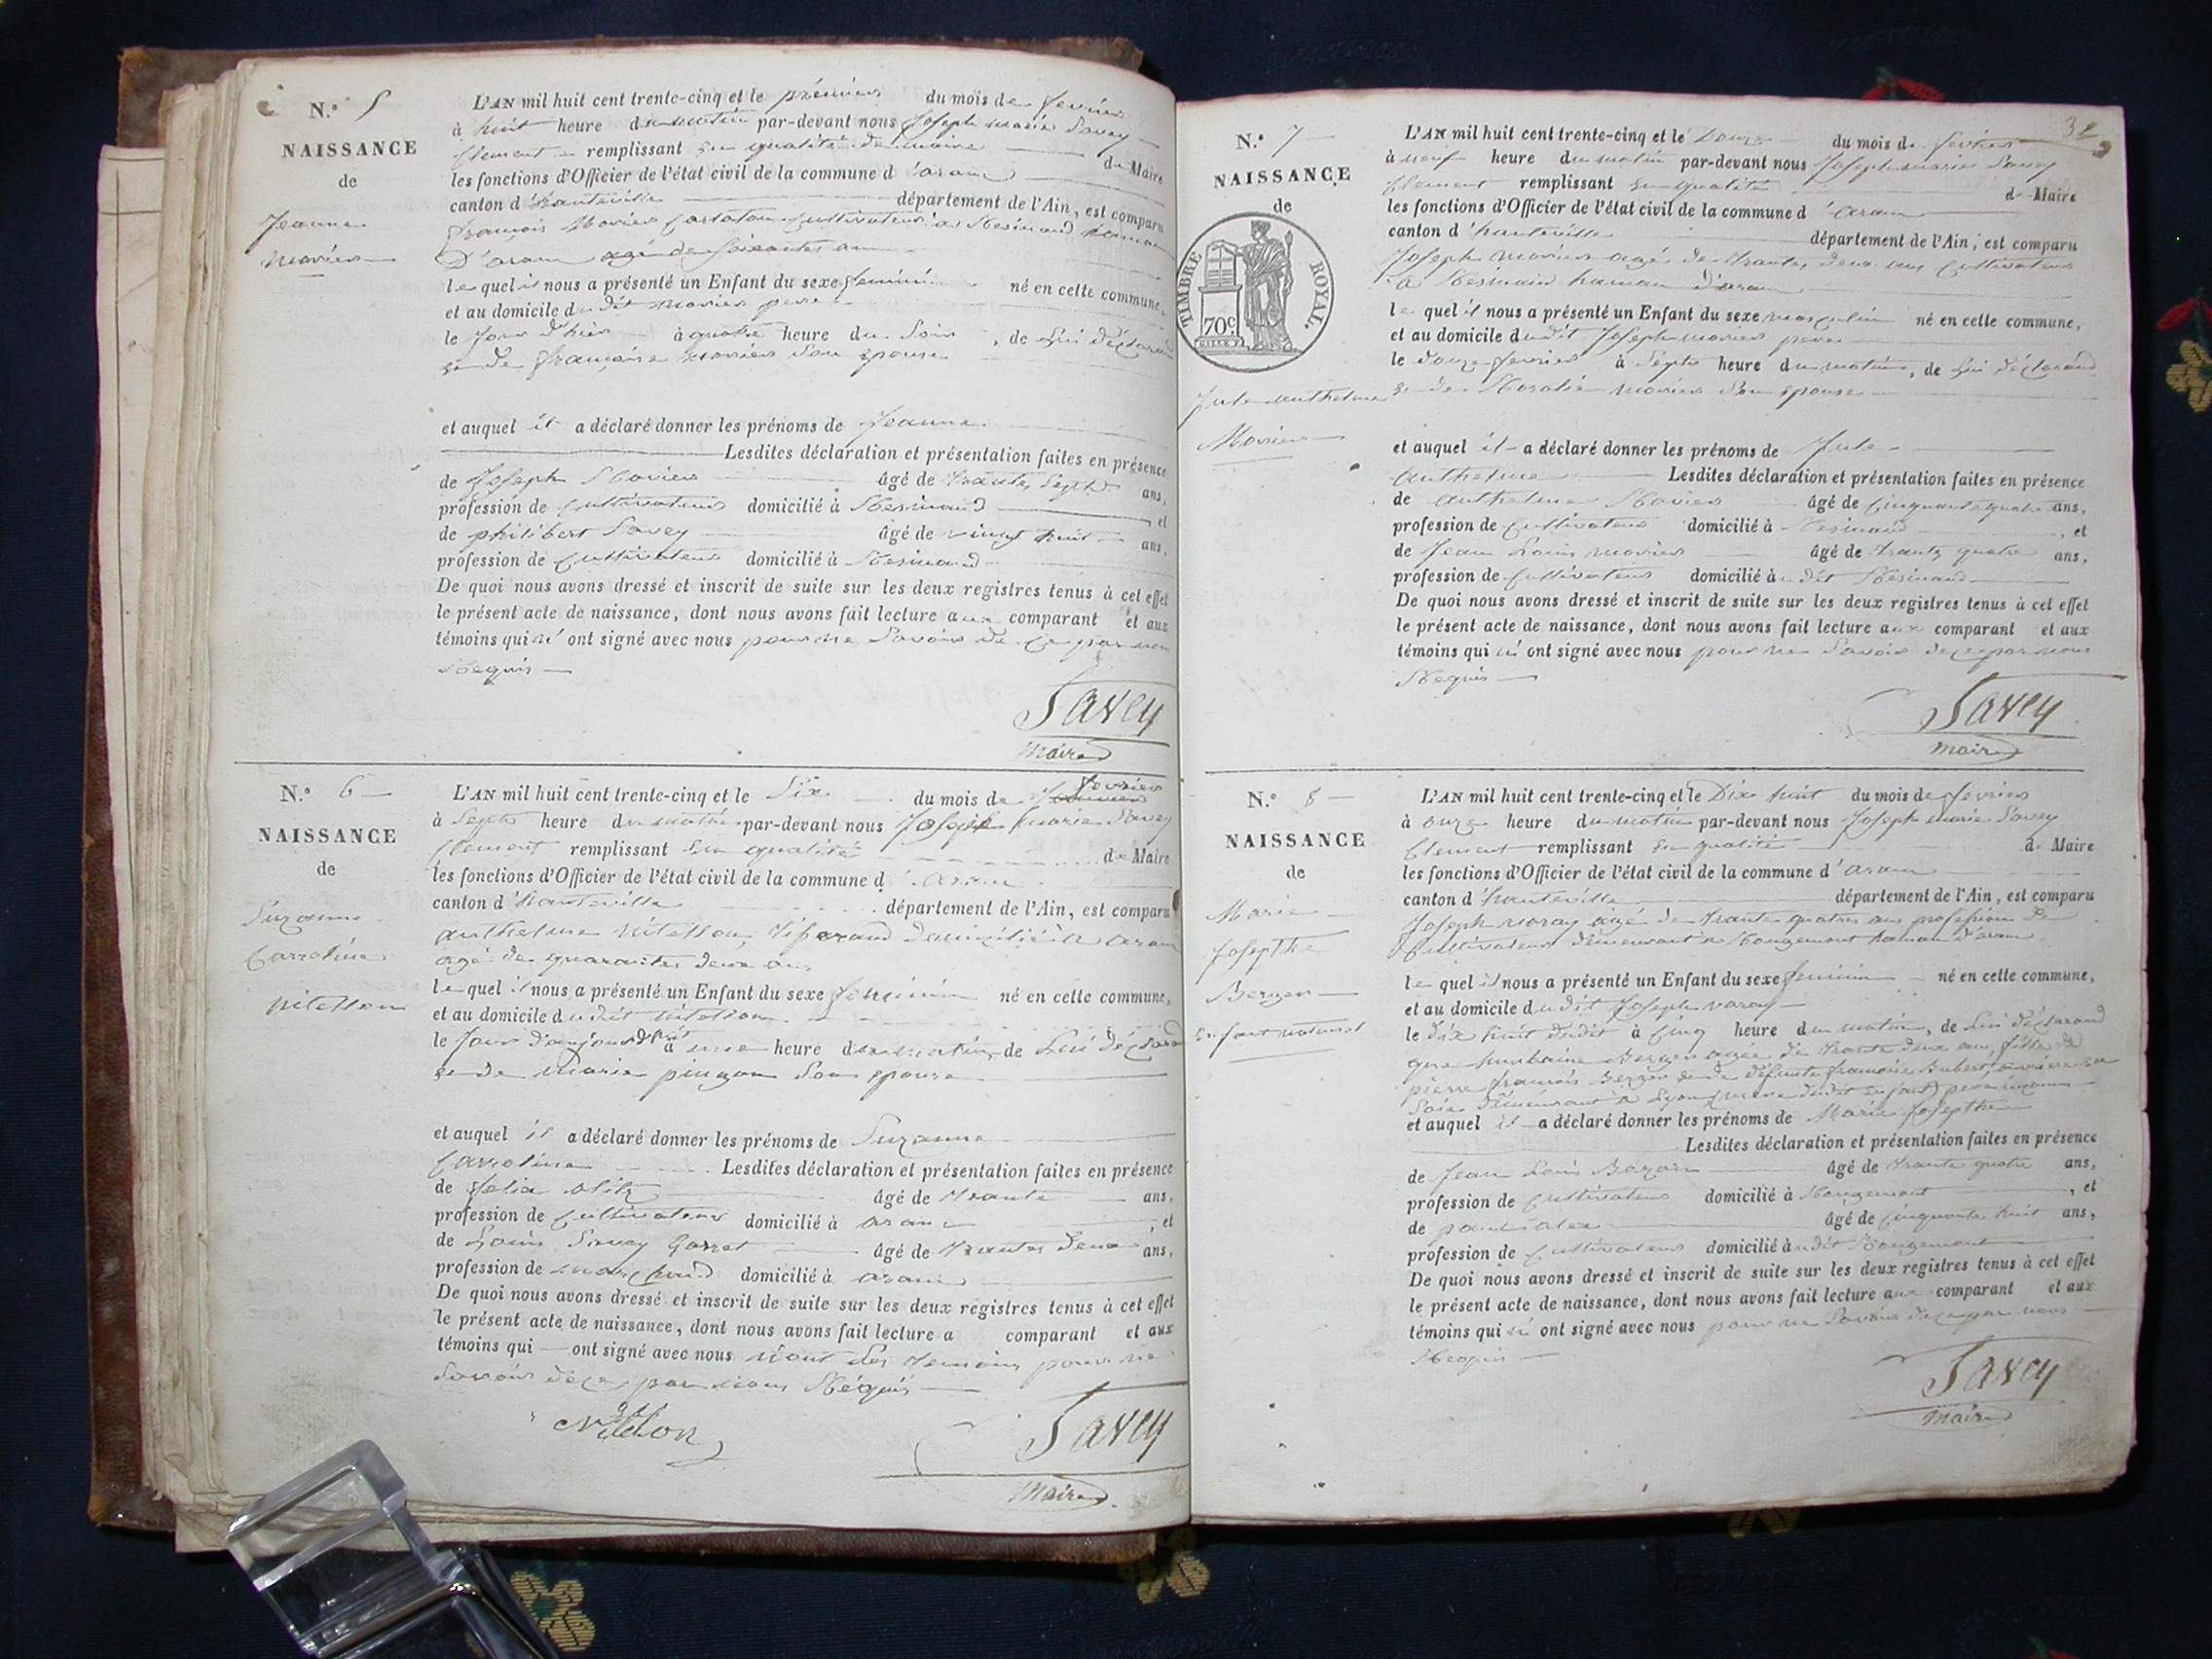 N.° 5
NAISSANCE
de
Jeanne
Moviers
L'AN mil huit cent trente-cinq et le premiers du mois de fevrier
à huit heure du matin par-devant nous Joseph marie Savey
Clement remplissant en qualité de maire de Maire
les fonctions d'Officier de l'état civil de la commune d'aranc
canton d'hauteville département de l'Ain, est comparu
françois cultivateur à Resinand hamau
D'aranc agé de soixantes ans
le quel il nous a présenté un Enfant du sexe feminin né en cette commune,
et au domicile du dit pere
le Jour d'hier à quatre heure du Soir, de Lui déclarand
et de françoise Son epouse
et auquel il a déclaré donner les prénoms de Jeanne
Lesdites déclaration et présentation faites en présence
de Joseph âgé de trantes Septs ans,
profession de Cultivateurs domicilié à Resinand et
de philibert Savey âgé de vingt huit ans,
profession de Cultivateurs domicilié à Resinand
De quoi nous avons dressé et inscrit de suite sur les deux registres tenus à cet effet
le présent acte de naissance, dont nous avons fait lecture aux comparant et aux
témoins qui n'ont signé avec nous pour ne Savoir de ce par nous
Requis
Savey
Maire
N.° 6
NAISSANCE
de
Suzanne
Carroline
nitellon
L'AN mil huit cent trente-cinq et le Six du mois de fevrier
à Septs heure du matin par-devant nous Joseph marie Savey
Clement remplissant en qualité de Maire
les fonctions d'Officier de l'état civil de la commune d'aranc
canton d'hauteville département de l'Ain, est comparu
anthelme nitellon, tiserand domicilié à aranc
agé de quarantes deux ans
le quel il nous a présenté un Enfant du sexe feminin né en cette commune,
et au domicile du dit nitellon
le Jour d'aujourd'huit à une heure du matin, de Lui déclarand
et de Marie pingon Son epouse
et auquel il a déclaré donner les prénoms de Suzanne
Carroline Lesdites déclaration et présentation faites en présence
de felix âgé de trante ans,
profession de Cultivateurs domicilié à aranc, et
de Louis Savey Garret âgé de trantes deux ans,
profession de marchand domicilié à aranc
De quoi nous avons dressé et inscrit de suite sur les deux registres tenus à cet effet
le présent acte de naissance, dont nous avons fait lecture a comparant et aux
témoins qui ont signé avec nous non Les temoins pour ne
Savoir de ce par nous Réquis
Nitelon
Savey
Maire
32
N.° 7
NAISSANCE
de
TIMBRE ROYAL.
70c
Jule anthelme
Moviers
L'AN mil huit cent trente-cinq et le Douze du mois de fevrier
à neuf heure du matin par-devant nous Joseph marie Savey
Clement remplissant en qualité de Maire
les fonctions d'Officier de l'état civil de la commune d'aranc
canton d'hauteville département de l'Ain, est comparu
Joseph agé de trantes deux ans Cultivateur
à Resinand hamau d'aranc
le quel il nous a présenté un Enfant du sexe masculin né en cette commune,
et au domicile du dit Joseph pere
le douze fevrier à Septs heure du matin, de Lui déclarand
et de Rosalie Son epouse
et auquel il a déclaré donner les prénoms de Jule
anthelme Lesdites déclaration et présentation faites en présence
de anthelme âgé de Cinquante quatre ans,
profession de Cultivateur domicilié à Resinand, et
de Jean Louis âgé de trante quatre ans,
profession de Cultivateurs domicilié à u dit Resinand
De quoi nous avons dressé et inscrit de suite sur les deux registres tenus à cet effet
le présent acte de naissance, dont nous avons fait lecture aux comparant et aux
témoins qui n'ont signé avec nous pour ne Savoir de ce par nous
Requis
Savey
Maire
N.° 8
NAISSANCE
de
Marie
Josepthe
Berger
enfant naturel
L'AN mil huit cent trente-cinq et le Dix huit du mois de fevrier
à onze heure du matin par-devant nous Joseph marie Savey
Clement remplissant en qualité de Maire
les fonctions d'Officier de l'état civil de la commune d'aranc
canton d'hauteville département de l'Ain, est comparu
Joseph agé de trante quatres ans profession de
Cultivateur demeurant à Rougemont hamau d'aranc
le quel il nous a présenté un Enfant du sexe feminin né en cette commune,
et au domicile du dit Joseph
le dix huit dudit à Cinq heure du matin, de Lui déclarand
que Berger agée de trante deux ans, fille de
pierre françois Berger et de défunte françoise ouvriere en
Soie demeurant à Lyon mere dudit enfant, pere inconnu
et auquel il a déclaré donner les prénoms de Marie Josepthe
Lesdites déclaration et présentation faites en présence
de Jean Louis âgé de trante quatre ans,
profession de Cultivateur domicilié à Rougemont, et
de âgé de Cinquantes huit ans,
profession de Cultivateurs domicilié à u dit Rougemont
De quoi nous avons dressé et inscrit de suite sur les deux registres tenus à cet effet
le présent acte de naissance, dont nous avons fait lecture aux comparant et aux
témoins qui n'ont signé avec nous pour ne Savoir de ce par nous
Requis
Savey
Maire